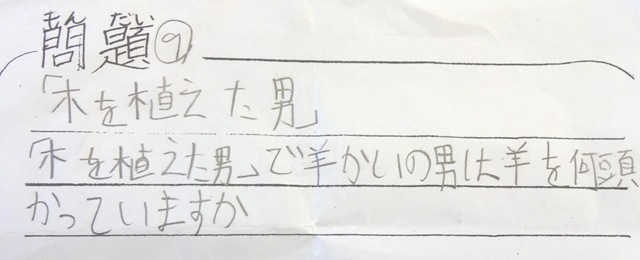 問題⑨
「木を植えた男」
「木を植えた男」で羊かいの男は羊を何頭
かっていますか